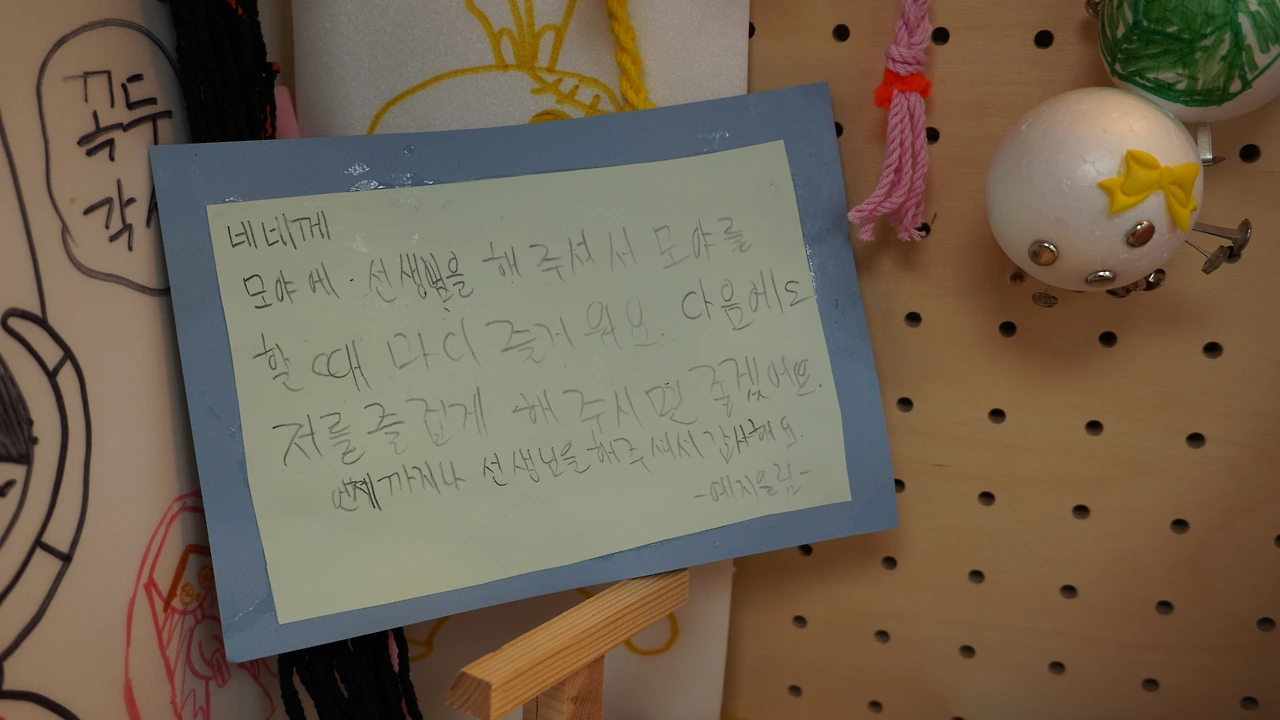 꼭두
각
네네께
모야에 선생님을 해주셔서 모야를
할 때 마다 즐거워요. 다음에도
저를 즐겁게 해주시면 좋겠어요.
언제까지나 선생님을해주세서 감사해요.
-예지올림-